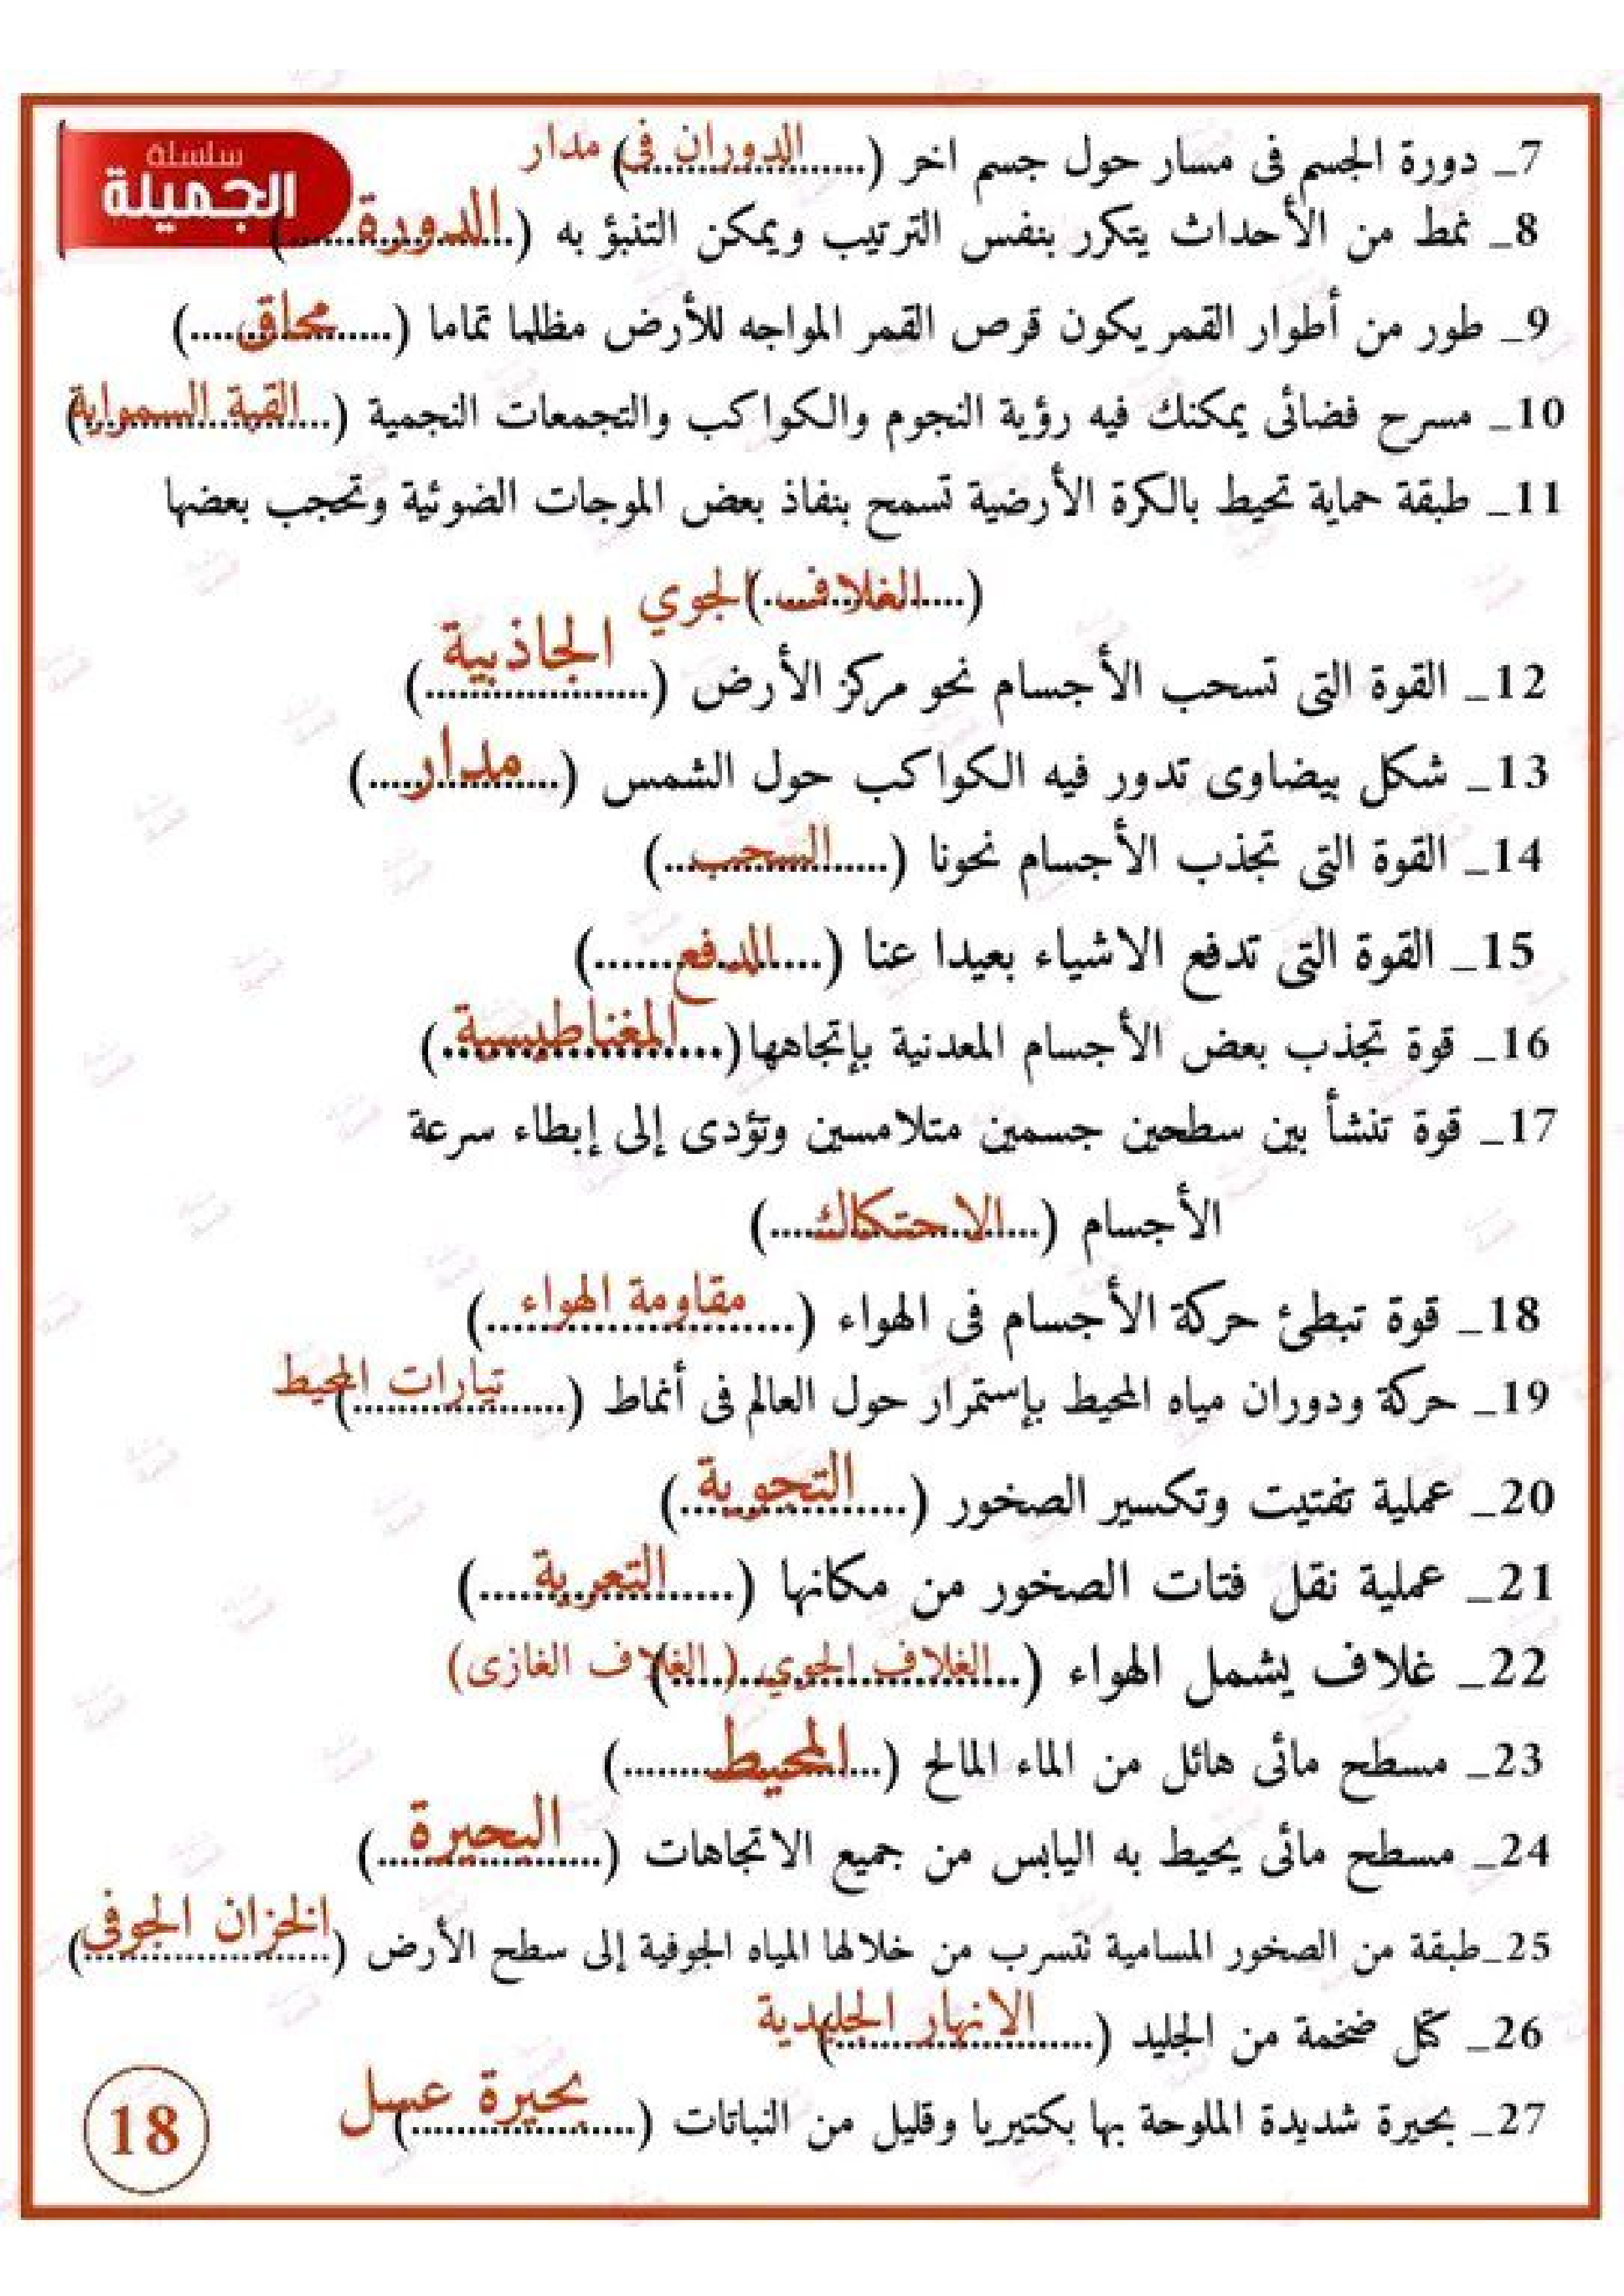 سلسلة
الجميلة
7_ دورة الجسم فى مسار حول جسم اخر (الدوران فى مدار)
8_ نمط من الأحداث يتكرر بنفس الترتيب ويمكن التنبؤ به (الدورة)
9_ طور من أطوار القمر يكون قرص القمر المواجه للأرض مظلما تماما (محاق)
10_ مسرح فضائى يمكنك فيه رؤية النجوم والكواكب والتجمعات النجمية (القبة السمواية)
11_ طبقة حماية تحيط بالكرة الأرضية تسمح بنفاذ بعض الموجات الضوئية وتحجب بعضها
(الغلاف الجوي)
12_ القوة التى تسحب الأجسام نحو مركز الأرض (الجاذبية)
13_ شكل بيضاوى تدور فيه الكواكب حول الشمس (مدار)
14_ القوة التى تجذب الأجسام نحونا (السحب)
15_ القوة التى تدفع الاشياء بعيدا عنا (الدفع)
16_ قوة تجذب بعض الأجسام المعدنية بإتجاهها (المغناطيسية)
17_ قوة تنشأ بين سطحين جسمين متلامسين وتؤدى إلى إبطاء سرعة
الأجسام (الاحتكاك)
18_ قوة تبطئ حركة الأجسام فى الهواء (مقاومة الهواء)
19_ حركة ودوران مياه المحيط بإستمرار حول العالم فى أنماط (تيارات المحيط)
20_ عملية تفتيت وتكسير الصخور (التجوية)
21_ عملية نقل فتات الصخور من مكانها (التعرية)
22_ غلاف يشمل الهواء (الغلاف الجوي (الغلاف الغازى)
23_ مسطح مائى هائل من الماء المالح (المحيط)
24_ مسطح مائى يحيط به اليابس من جميع الاتجاهات (البحيرة)
25_طبقة من الصخور المسامية تتسرب من خلالها المياه الجوفية إلى سطح الأرض (الخزان الجوفى)
26_ كتل ضخمة من الجليد (الانهار الجليدية)
27_ بحيرة شديدة الملوحة بها بكتيريا وقليل من النباتات (بحيرة عسل)
18